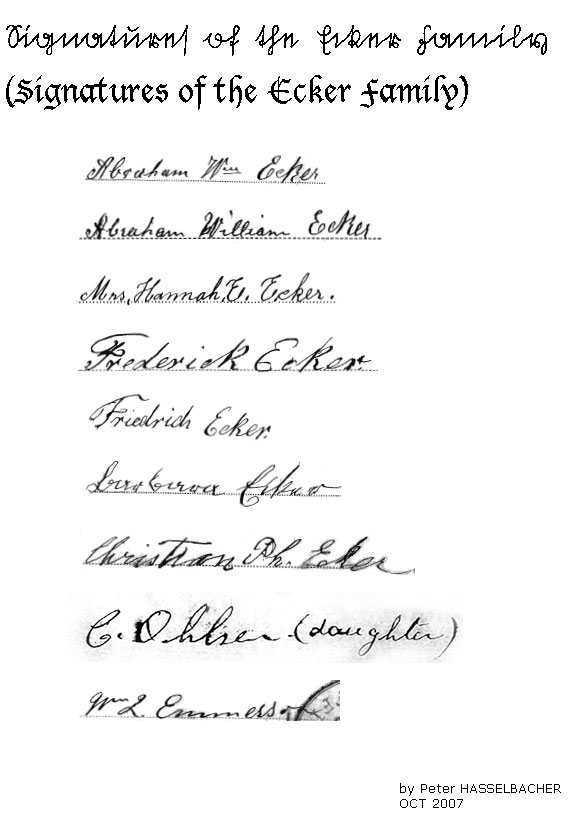 Signatures of the Ecker Family
(Signatures of the Ecker Family)
Abraham Wm Ecker
Abraham William Ecker
Mrs, Hannah, E. Ecker.
Frederick Ecker.
Friedrich Ecker.
Barbara Ecker
Christian Ph. Ecker
C. Ohlsen (daughter)
Wm L. Emmers
by Peter HASSELBACHER
OCT 2007